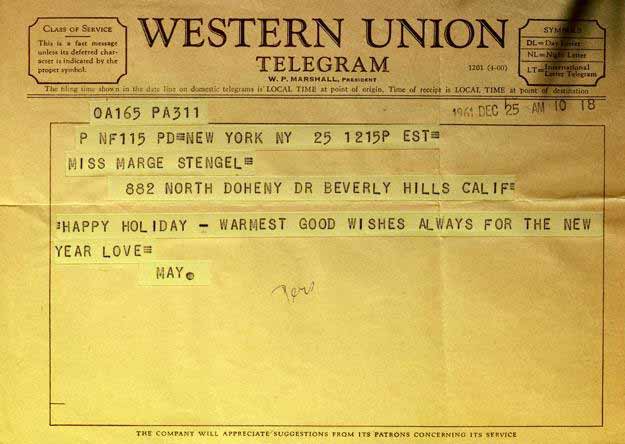 CLASS OF SERVICE
This is a fast message
unless its deferred char-
acter is indicated by the
proper symbol.
WESTERN UNION
TELEGRAM
W. P. MARSHALL, PRESIDENT
1201 (4-00)
SYMBOLS
DL=Day Letter
NL=Night Letter
LT=International Letter Telegram
The filing time shown in the date line on domestic telegrams is LOCAL TIME at point of origin. Time of receipt is LOCAL TIME at point of destination
OA165 PA311
1961 DEC 25 AM 10 18
P NF115 PD=NEW YORK NY 25 1215P EST=
MISS MARGE STENGEL=
882 NORTH DOHENY DR BEVERLY HILLS CALIF=
=HAPPY HOLIDAY - WARMEST GOOD WISHES ALWAYS FOR THE NEW
YEAR LOVE=
MAY.
THE COMPANY WILL APPRECIATE SUGGESTIONS FROM ITS PATRONS CONCERNING ITS SERVICE